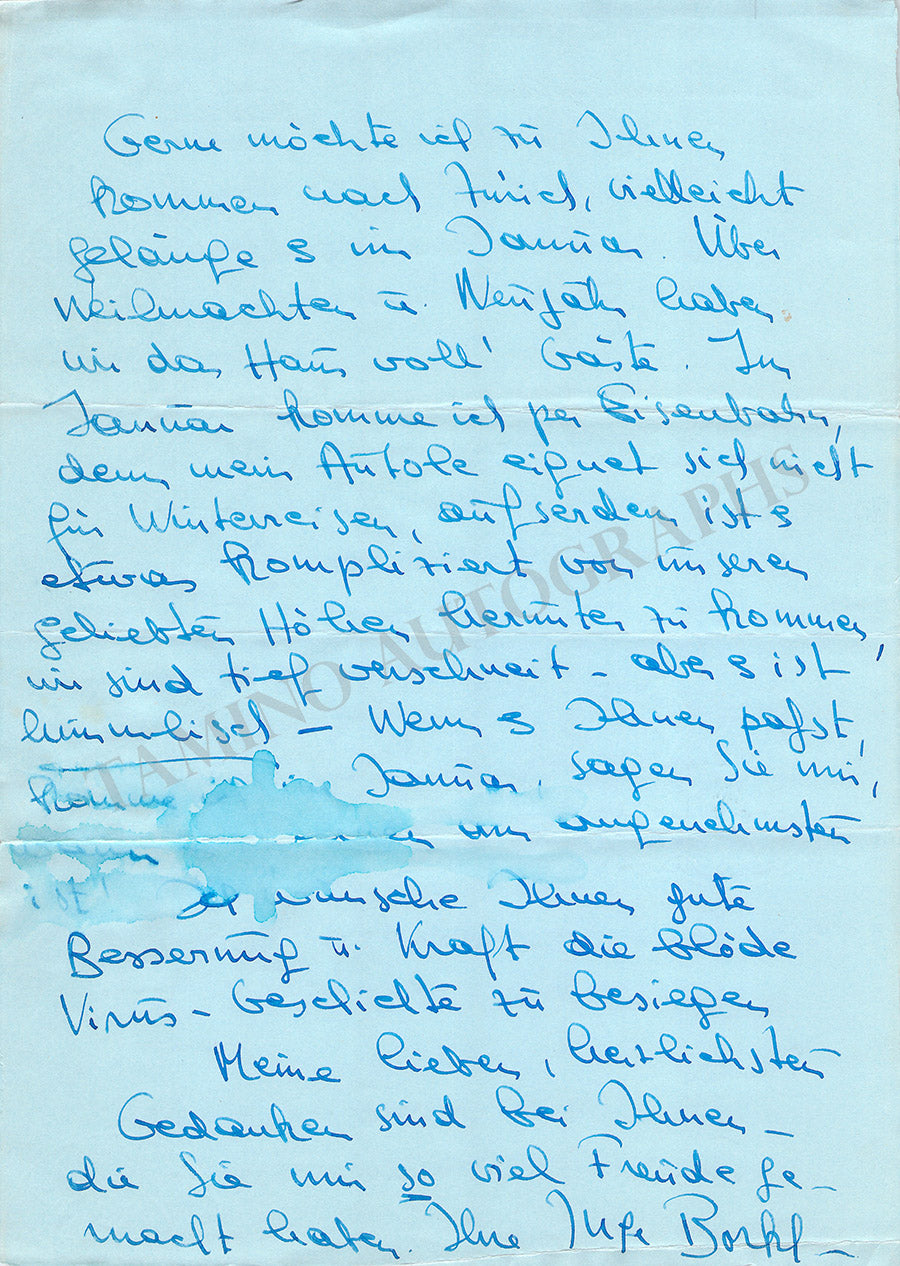 Gerne möchte ich zu Ihnen
kommen nach Zürich, vielleicht
gelänge es im Januar. Über
Weihnachten u. Neujahr haben
wir das Haus voll' Gäste. Im
Januar komme ich per Eisenbahn,
denn mein Autole eignet sich nicht
für Winterreisen, aufserdem ist es
etwas kompliziert von unseren
geliebten Höhen herunter zu kommen,
wir sind tief verschneit – aber es ist
himmlisch – Wenn es Ihnen pafst,
komme Januar, sagen Sie mir,
am angenehmsten
ist!
Ich wünsche Ihnen gute
Besserung u. Kraft die blöde
Virus-Geschichte zu besiegen
Meine lieben, herzlichsten
Gedanken sind bei Ihnen –
die Sie mir so viel Freude ge-
macht haben. Ihre Inge Borkh –
TAMINO AUTOGRAPHS